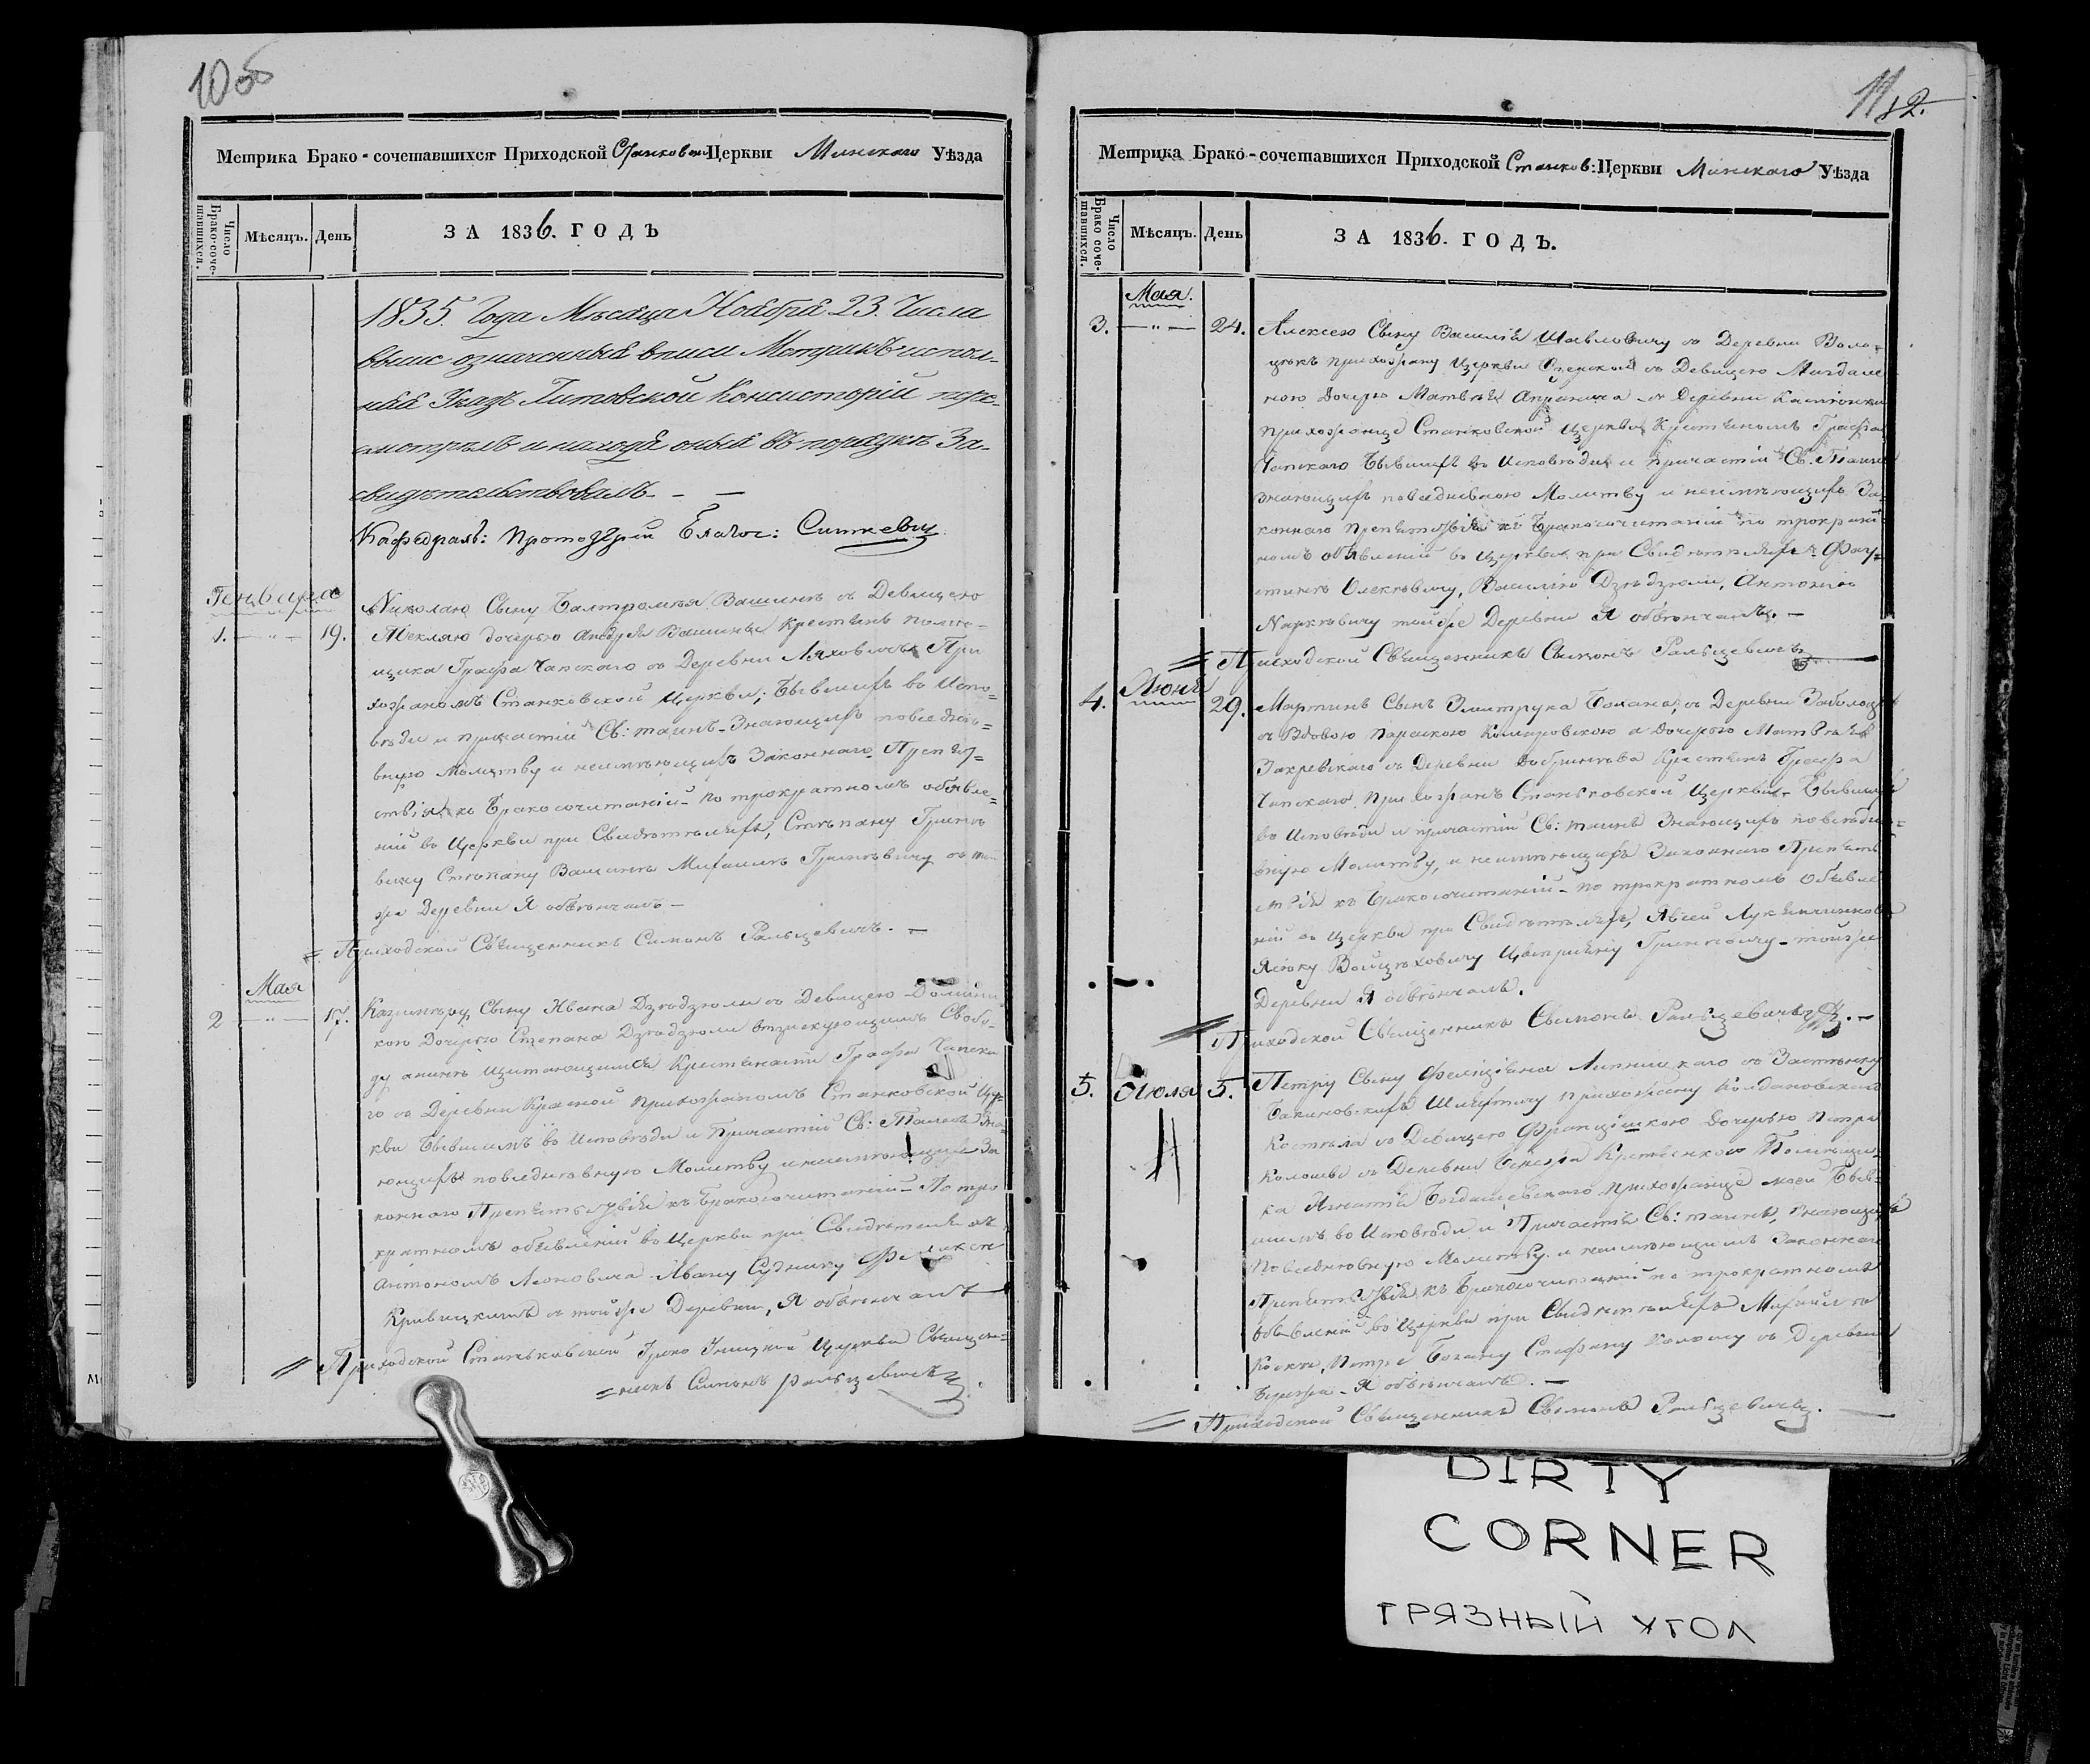 10об
Метрика Брако-сочетавшихся Приходской Станковской Церкви Минскаго Уѣзда
Число Брако-соче-тавшихся.
Мѣсяцъ.
День
ЗА 1836. ГОДЪ
1835. Года Мѣсяца Ноября 23. Числа
выше означенныя вписи Метрикъ испол-
няя Указъ Литовской Консисторіи пере-
смотрелъ и находя оныя въ порядкѣ За-
свидѣтельствовалъ. — —
Кафедрал: Протоіерей Благоч: Ситкевич
Генваря
1. — „ — 19.
Николаю Сыну Балтромея Вашинѣ съ Девицею
Теклею дочерью Андрея Вашины Крестянъ помѣ-
щика Графа Чапскаго съ Деревни Ляховичъ При
хожаномъ Станковской Церкви; Бывшихъ во Испо-
вѣди и причастіи Св: таинъ Знающихъ повседнѣ-
вную Молитву и неимѣющихъ Законнаго Препят-
ствія къ Бракосочитаніи по трократномъ объявле-
ніи въ Церкви при Свидѣтеляхъ, Стѣпану Гринке
вичу Стѣпану Вашинѣ Михаилѣ Гринкевичу съ той
же Деревни Я обвѣнчалъ —
Приходской Священникъ Симонъ Ральцевичъ. —
Мая
2 — „ — 17.
Казимѣру Сыну Ивана Дзѣдзюли съ Девицею Домини
кою Дочерью Степана Дзѣдзюли взыскующимъ Свобо-
ду а нинѣ щитающимися Крестянами Графа Чапска
го съ Деревни Красной прихожаномъ Станковской Цер-
кви Бывшимъ во Исповѣди и Причастіи Св: Таинъ Зна-
ющихъ повседнѣвную Молитву и неимѣющихъ За
коннаго Препятствія къ Бракосочитаніи По тро
кратномъ объявленіи въ Церкви при Свидѣтеляхъ
Антономъ Леоновича Ивану Суднику
Кривицкимъ с той же Деревни, Я обвѣнчалъ
Приходской Станьковской Греко Уницкой Церкви Священ-
никъ Симонъ Ральцевичъ
11 12.
Метрица Брако-сочетавшихся Приходской Станков: Церкви Минскаго Уѣзда
Число Брако соче-тавшихся.
Мѣсяцъ.
День
ЗА 1836. ГОДЪ.
Мая.
3. — „ — 24.
Алексею Сыну Василія Шавловичу съ Деревни Воло-
прихожану Церкви съ Девицею Магдале
ною Дочерю Матвея съ Деревни
прихожанце Станковской Церкви Крестяномъ Графа
Чапскаго Бывшихъ во Исповѣди и причастіи Св. Таинъ
знающихъ повседневною Молитву и неимѣющихъ За-
коннаго препятствія къ Бракосочитаніи по трократ
номъ объявленіи въ Церкви при Свидѣтеляхъ Фау-
Василію Дзѣдзюли, Антонію
Наркевичу тойже Деревни Я обвѣнчалъ. —
Приходской Священникъ Симонъ Ральцевичъ
Июня
4. 29.
Мартинъ Сынъ Змитрука Бохана, съ Деревни Заболо
съ Вдовою Параскою Комаровскою а Дочерью Матвея
Закревскаго съ Деревни Крестянъ Графа
Чапскаго прихожанъ Станьковской Церкви Бывшихъ
во Исповѣди и причастіи Св: таинъ Знающихъ повседнѣ-
вную Молитву, и неимѣющихъ Законнаго Препят
ствія къ Бракосочитаніи по трократномъ объявле
ніи въ Церкви при Свидѣтеляхъ,
Яську Войцѣховичу Гринкевичу тойже
Деревни Я обвѣнчалъ.
Приходской Священникъ Симонъ Ральцевичъ. —
5. Июля 5.
Петру Сыну Феліціяна Липницкаго съ Застѣнку
Шляхтичу прихожану Койдановскаго
Костела съ Девицею Францішкою Дочерью Петра
съ Деревни Бережа Помѣщи-
ка Игнатія Богдашевскаго прихожанце моей Быв-
шимъ во Исповѣди и Причастіи Св: таинъ, знающихъ
повседнѣвную Молитву и неимѣющимъ Законнаго
Препятствія къ Бракосочитаніи по трократномъ
объявленіи въ Церкви при Свидѣтеляхъ Михаилѣ
Петре Бохану Стефану съ Деревни
Бережа Я обвѣнчалъ. —
Приходской Священникъ Симонъ Ральцевичъ. —
DIRTY
CORNER
ГРЯЗНЫЙ УГОЛ